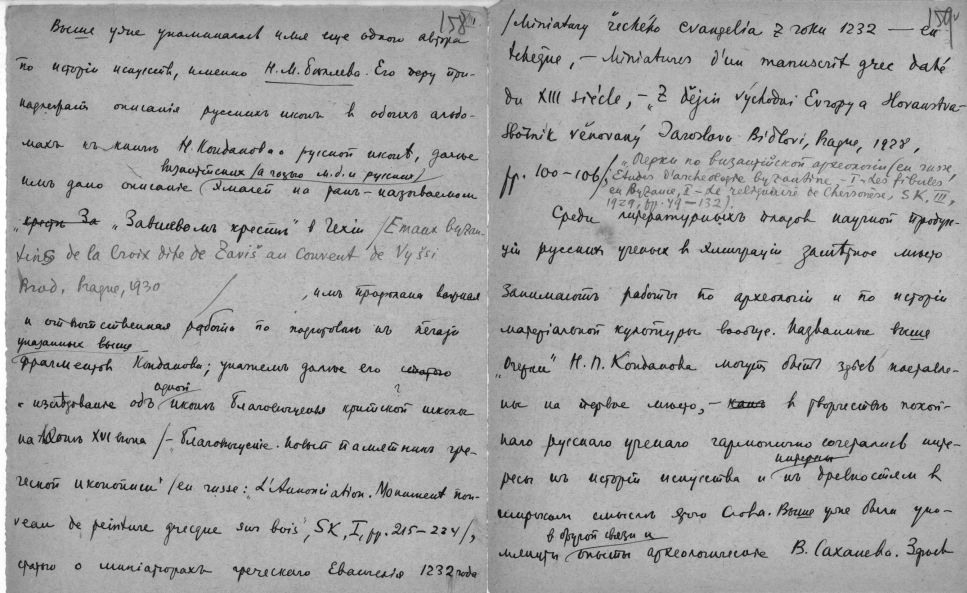 158
Выше уже упоминалось имя еще одного автора
по исторіи искусств, именно Н.М. Бѣляева. Его перу при-
надлежат описанія русских икон в обоих альбо-
махъ къ книгѣ Н. Кондакова о русской иконѣ, далѣе
византійских /а чᴀстью м.б. и русских/
имъ дано описаніе эмалей на так-называемом
"Завишевомъ крестѣ" в Чехіи /Emaux byzan-
tins de la Croix dite de Zaviš au Couvent de Vyšši
Brod, Prague, 1930 /
, имъ продѣлана важная
и отвѣтственная работа по подготовкѣ къ печати
указанных выше
фрагментов Кондакова; укажемъ далѣе его
изслѣдованіе объ одной иконѣ Благовѣщенья критской ? школы
XVI вѣка /- "Благовѣщеніе. Новый памятникъ гре-
ческой иконописи" /en russe: "L'Annonciation. Monument nou-
veau de peinture grecque sur bois", SK, I, pp. 215-224/,
статью о миніатюрахъ греческаго Евангелія 1232 года
159
/Miniatury řeckého evangelia z roku 1232 — en
tchèque, - Miniatures d'un manuscrit grec daté
du XIII siècle, - "Z dějin východní Evropy a Slovanstva-
Sborník věnovaný Jaroslavu Bidlovi, Prague, 1928,
pp. 100-106/, "Очерки по византійской археологіи /en russe,
Etudes d'archéologie byzantine - I - Les fibules
en Byzance, II - Le reliquaire de Chersonèse, SK, III,
1929, pp. 49-132/.
Среди литературныхъ плодов научной продук-
ціи русских ученых в эмиграціи замѣтное мѣсто
занимаютъ работы по археологіи и по исторіи
матеріальной культуры вообще. Названные выше
"Очерки" Н.П. Кондакова могутъ быть здѣсь поставле-
ны на первое мѣсто, - в творчествѣ покой-
наго русскаго ученаго гармонично сочетались инте-
ресы къ исторіи искусства и къ древностям в
широком смыслѣ этого слова. Выше уже были упо-
в другой связи и
мянуты опыты археологическіе В. Саханева. Здѣсь